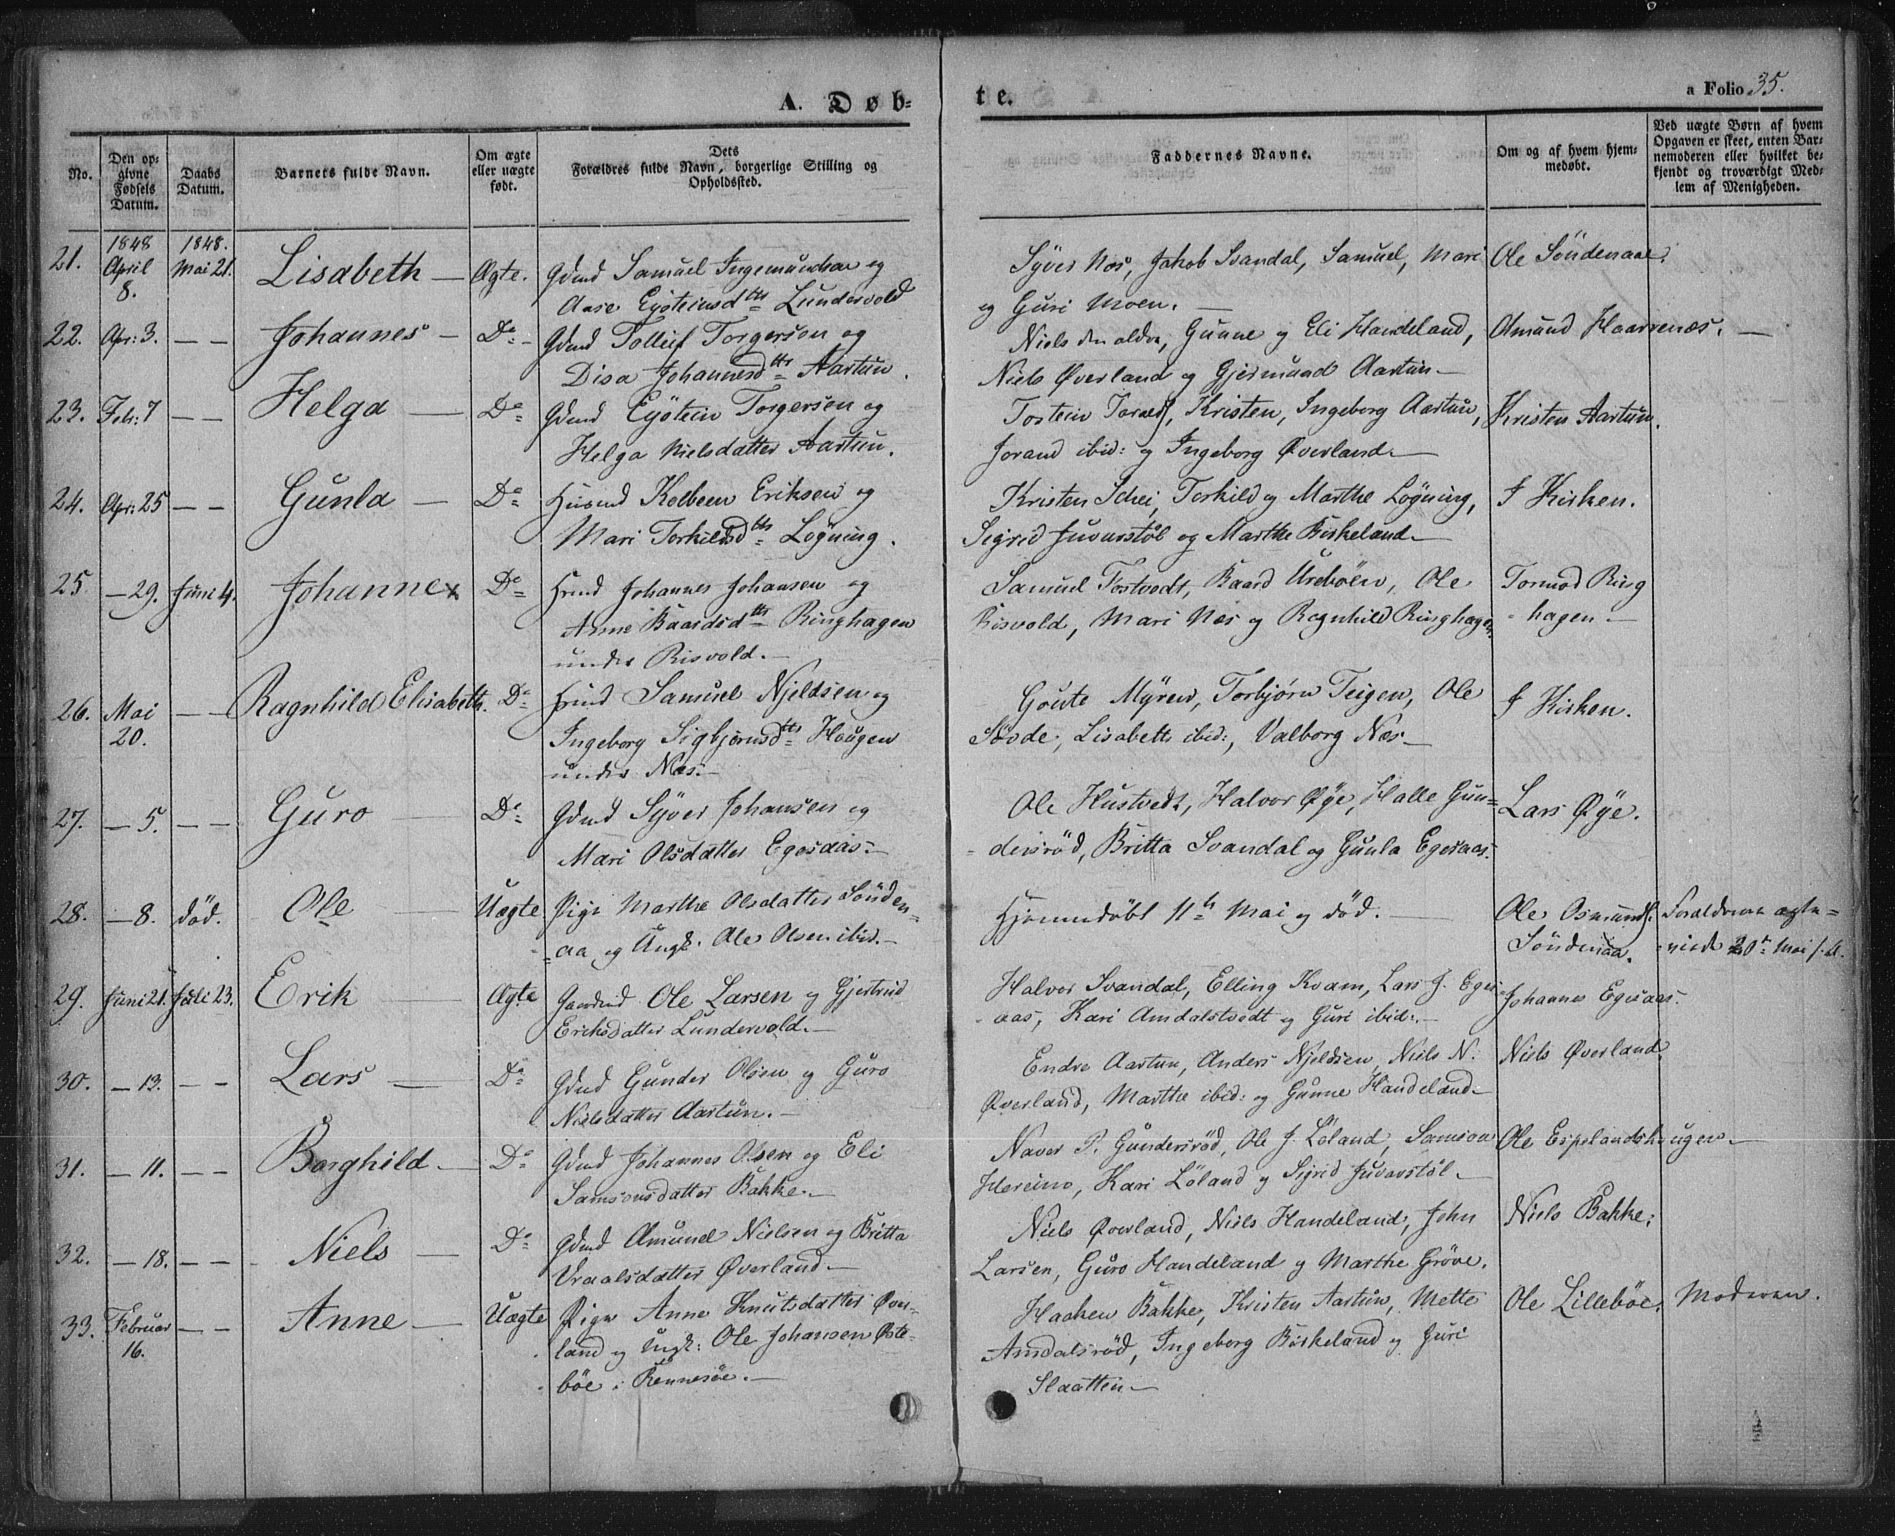 A. Døb-
te.
a Folio 35.
No.
Den op-
givne
Fødsels
Datum.
Daabs
Datum.
Barnets fulde Navn.
Om ægte
eller uægte
født.
Dets
Forældres fulde Navn, borgerlige Stilling og
Opholdssted.
Faddernes Navne.
Om og af hvem hjem-
medøbt.
Ved uægte Børn af hvem
Opgaven er skeet, enten Bar-
nemoderen eller hvilket be-
kjendt og troværdigt Med-
lem af Menigheden.
21.
1848
April
8.
1848.
Mai 21.
Lisabeth
Ægte.
Gdmd Samuel Ingemundsen og
Aase Eysteinsdtr Lundervold
Syver Nes, Jakob Svandal, Samuel, Mari
og Guri Moen.
Ole Söndenaae.
22. Apr: 3.
Johannes
Do
Gdmd Tollef Torgersen og
Disa Johannesdtr Aartun.
Niels den aldre, Gunne og Eli Handeland,
Niels Øverland og Gjermund Aartun
Amund Haavenæs.
23. Febr: 7
Helga
Do
Gdmd Eystein Torgersen og
Helga Nielsdatter Aartun.
Tostein Kristen, Ingeborg Aartun,
Jorand ibid: og Ingeborg Øverland
Kristen Aartun.
24. Apr: 25
Gunla
Do
Husmd Kolbeen Eriksen og
Mari Torkildsdtr Løgning.
Kristen Schei, Torkild og Marthe Løgning,
Sigrid Juvarstøl og Marthe Birkeland
I Kirken.
25. — 29. Juni 4.
Johanne x
Do
Hmd Johannes Johansen og
Anne Baardsdtr Ringhagen
under Risvold.
Samuel Tostvedt, Baard Urebøen, Ole
Risvold, Mari Nes og Ragnhild Ringhagen
Tormod Ring
hagen
26. Mai
20.
Ragnhild Elisabeth.
Do
Hmd Samuel Njeldsen og
Ingeborg Sigbjørnsdtr Haugen
under Næs.
Goute Myren, Torbjørn Teigen, Ole
Søvde, Lisabeth ibid:, Valborg Næs
I Kirken.
27. — 5.
Guro
Do
Gdmd Syver Johansen og
Mari Olsdatter Egesaas
Ole Hustvedt, Halvor Øye, Halle Gun-
dersrød, Britta Svandal og Gunla Egesaas.
Lars Øye.
28. — 8. død.
Ole
Uægte
Pige Marthe Olsdatter Sönden-
aa og Ungk: Ole Olsen ibid.
Hjemmedöbt 11te Mai og död.
Ole Osmunds.
Söndenaa.
Foraldrene agte-
viede 20de Mai
29. Juni 21. Juli 23.
Erik
Ægte
Gaardmd Ole Larsen og Gjertrud
Eriksdatter Lundervold.
Halvor Svandal, Elling Kvam, Lars J. Eges-
aas, Kari Amdalstvedt og Guri ibid:
Johannes Egesaas
30. — 13.
Lars
Do
Gdmd Gunder Olsen og Guro
Nielsdatter Aartun.
Endre Aartun, Anders Njeldsen, Niels N.
Øverland, Marthe ibid: og Gunne Handeland
Niels Øverland
31. — 11.
Borghild
Do
Gdmd Johannes Olsen og Eli
Samsonsdatter Bakke.
Naver P. Gundersrød, Ole J. Løland, Samson
Hereim, Kari Løland og Sigrid Juvarstøl
Ole Espelandshaugen
32. — 18.
Niels
Do
Gdmd Amund Nielsen og Britta
Vraalsdatter Øverland
Niels Øverland, Niels Handeland, John
Larsen, Guro Handeland og Marthe Grøve.
Niels Bakke.
33. Februar
16.
Anne
Uægte
Pige Anne Knutsdatter Over-
land og Ungk: Ole Johansen Øste-
böe i Rennesöe.
Haaken Bakke, Kristen Aartun, Mette
Amdalsrød, Ingeborg Birkeland og Guri
Slaatten
Ole Lilleböe.
Moderen.